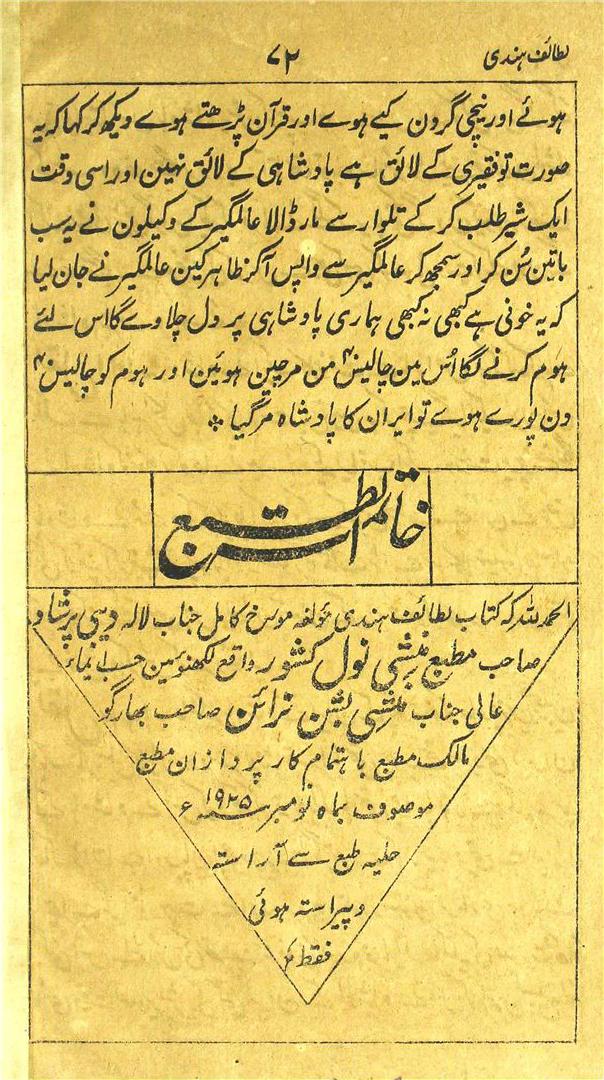 لطائف ہندی
۷۲
ہوئے اور نیچی گردن کیے ہوے اور قرآن پڑھتے ہوے دیکھ کر کہا کہ یہ
صورت تو فقیری کے لائق ہے پادشاہی کے لائق نہین اور اسی وقت
ایک شیر طلب کر کے تلوار سے مار ڈالا عالمگیر کے وکیلون نے یہ سب
باتین سُن کر اور سمجھ کر عالمگیر سے واپس آکر ظاہر کین عالمگیر نے جان لیا
کہ یہ خونی ہے کبھی نہ کبھی ہماری پادشاہی پر دل چلاوے گا اس لئے
ہوم کرنے لگا اُس مین چالیس من مرچین ہوئین اور ہوم کو چالیس
دن پورے ہوے تو ایران کا پادشاہ مر گیا ❖
خاتمۃ الطبع
الحمد للہ کہ کتاب لطائف ہندی مؤلفہ مورخ کامل جناب لالہ دیبی پرشاد
صاحب مطبع منشی نول کشور واقع لکھنؤ مین حسب ایماے
عالی جناب منشی بشن نرائن صاحب بھارگو
مالک مطبع باہتمام کار پردازان مطبع
موصوف بماہ نومبر سنہ ۱۹۲۵ ء
حلیہ طبع سے آراستہ
و پیراستہ ہوئی
فقط